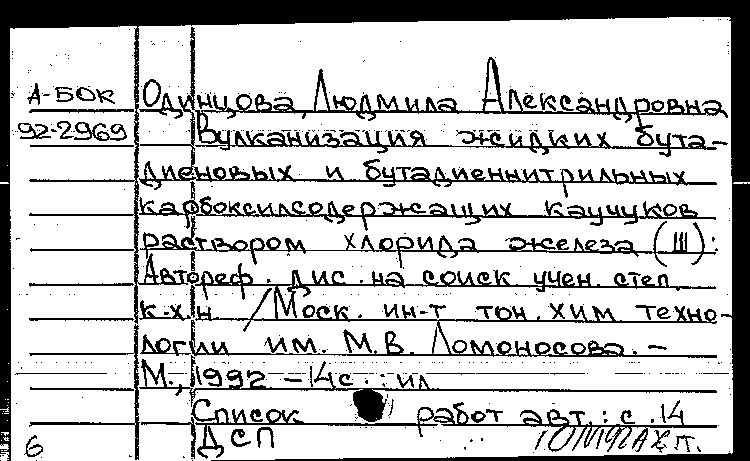 А-БОК Одинцова, Людмила Александровна
92-2969 Вулканизация жидких бута-
диеновых и бутадиеннитрильных
карбоксилсодержащих каучуков
раствором хлорида железа (III):
Автореф. дис. на соиск учен. степ.
к.х.н. /Моск. ин-т тон. хим. техно-
логии им. М.В. Ломоносова. -
М., 1992 - 14 с. : ил
Список работ авт.: с. 14
6 ДСП